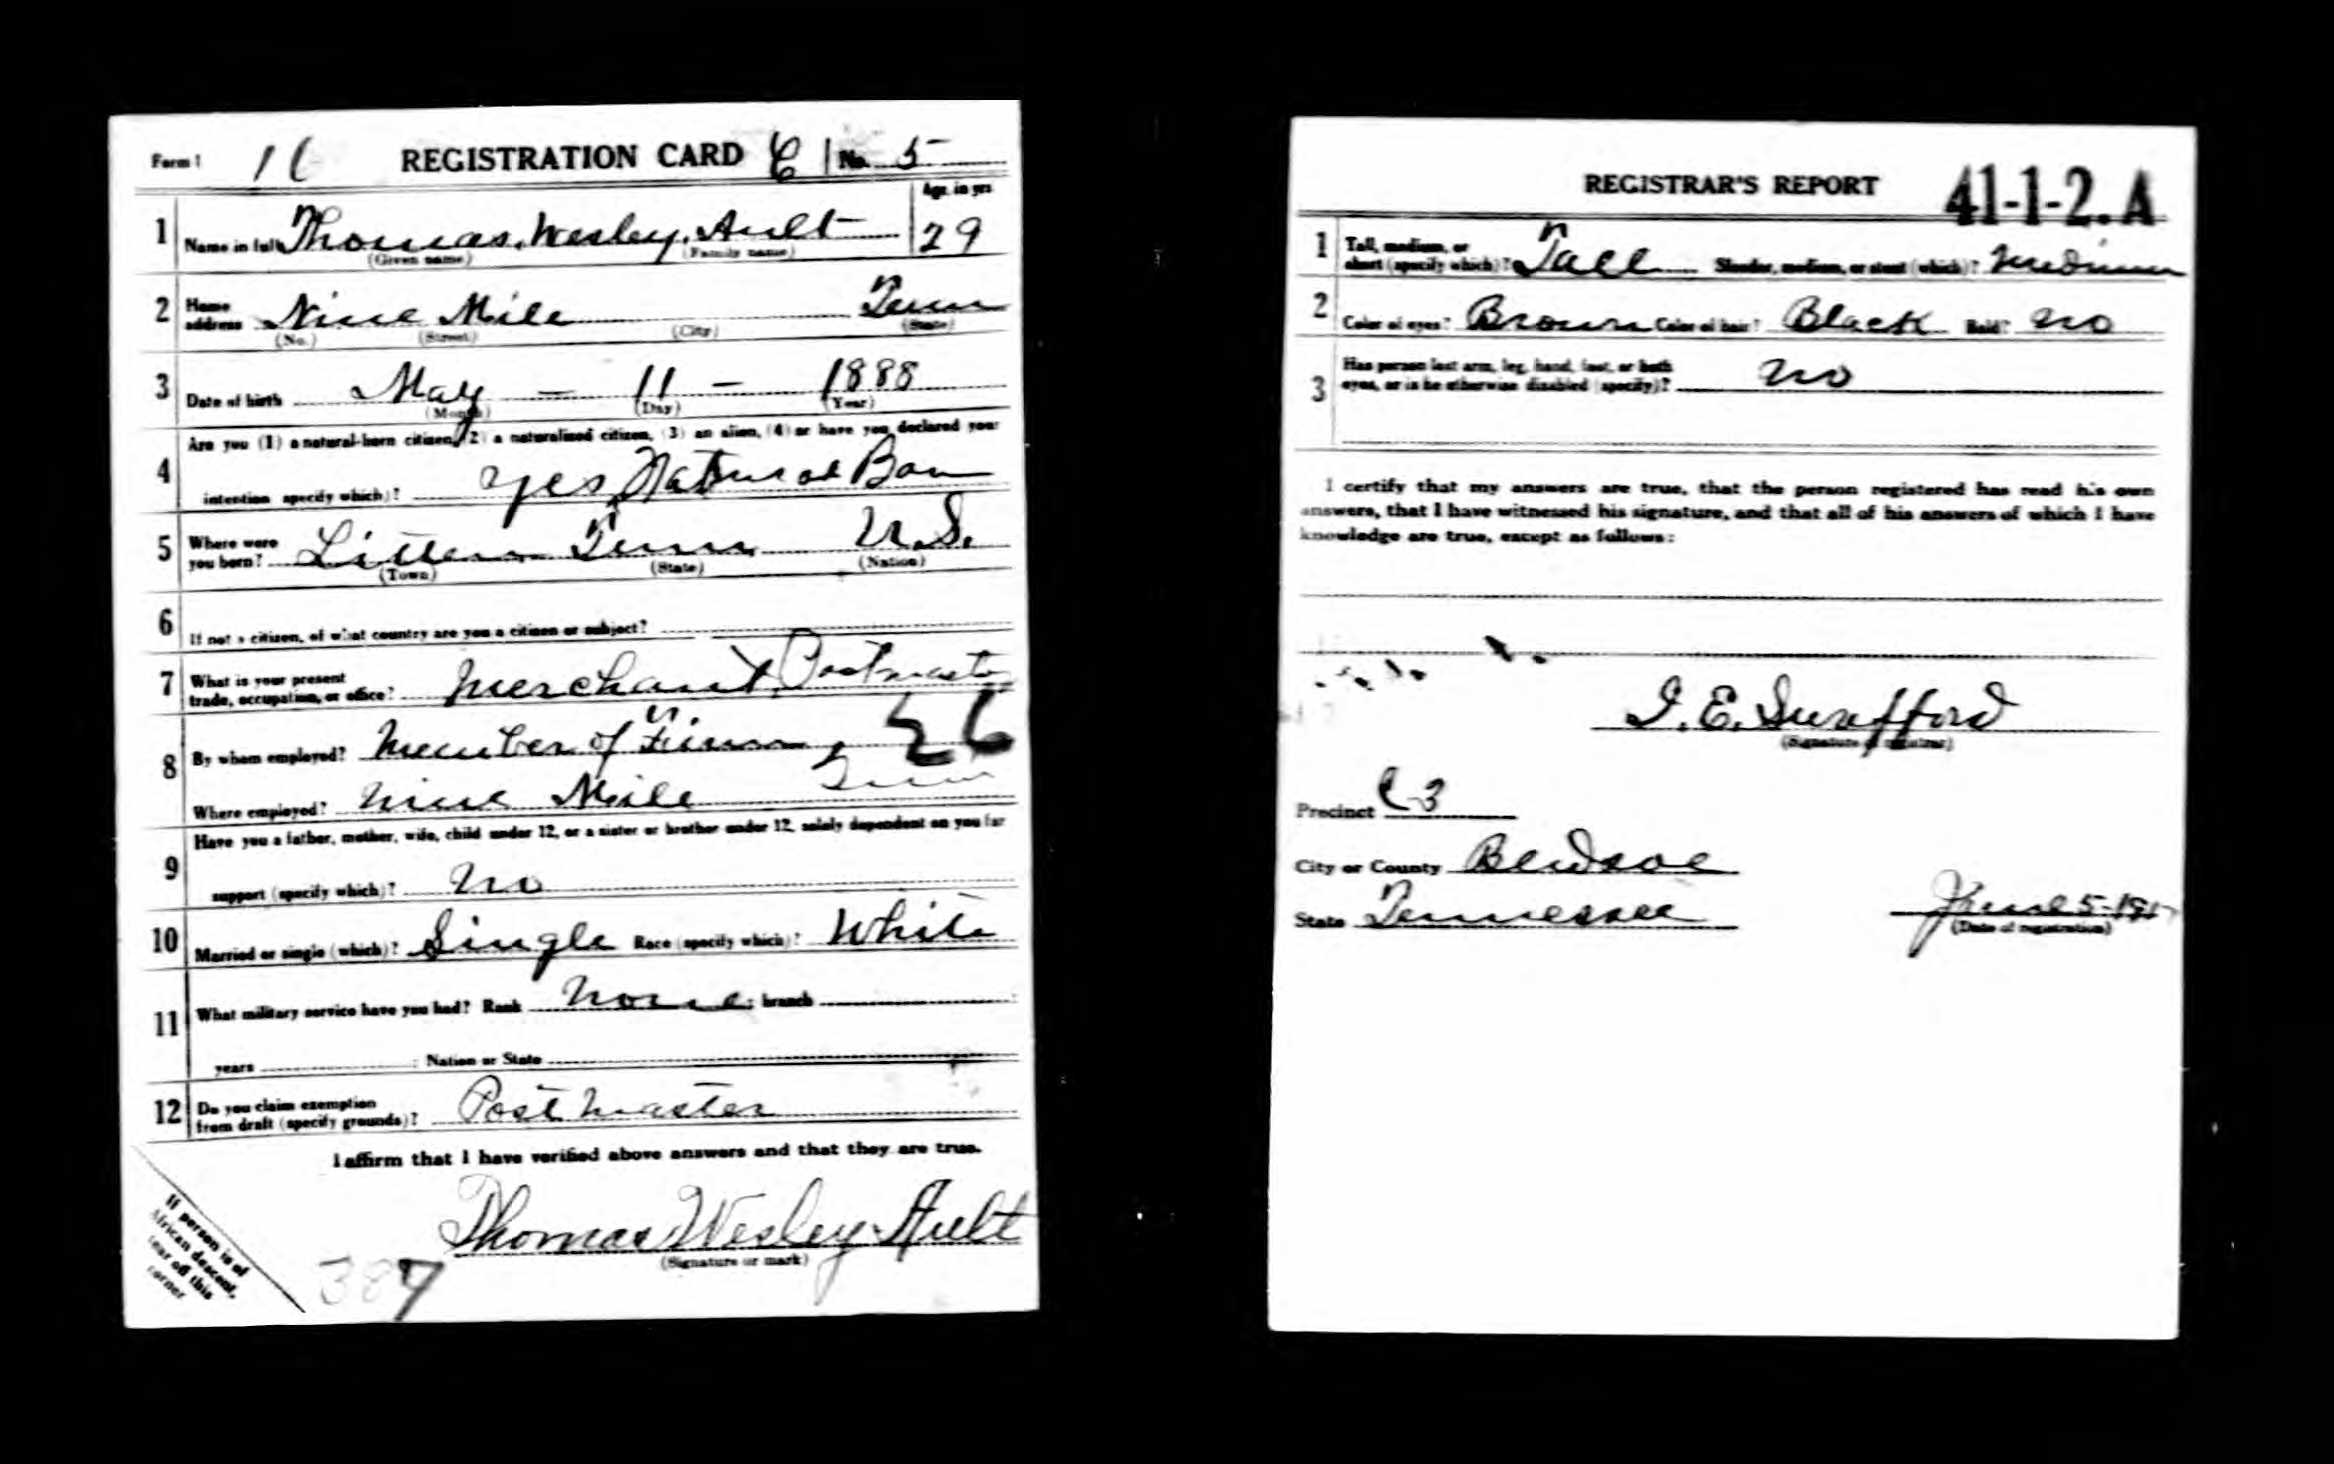 Form 1 16 REGISTRATION CARD C No. 5
Age, in yrs
1 Name in full Thomas. Wesley. Ault 29
(Given name) (Family name)
2 Home address Nine Mile Tenn
(No.) (Street) (City) (State)
3 Date of birth May - 11 - 1888
(Month) (Day) (Year)
4 Are you (1) a natural-born citizen, (2) a naturalized citizen, (3) an alien, (4) or have you declared your
intention specify which)? Yes, Natural Born
5 Where were you born? Litten Tenn U.S.
(Town) (State) (Nation)
6 If not a citizen, of what country are you a citizen or subject?
7 What is your present
trade, occupation, or office? Merchant, Postmaster
26
8 By whom employed? Member of Firm
Where employed? Nine Mile Tenn
9 Have you a father, mother, wife, child under 12, or a sister or brother under 12, solely dependent on you for
support (specify which)? No
10 Married or single (which)? Single Race (specify which)? White
11 What military service have you had? Rank None; branch
years ; Nation or State
12 Do you claim exemption
from draft (specify grounds)? Postmaster
I affirm that I have verified above answers and that they are true.
Thomas Wesley Ault
(Signature or mark)
If person is of
African descent,
tear off this
corner
387
REGISTRAR'S REPORT 41-1-2. A
1 Tall, medium, or
short (specify which)? Tall Slender, medium, or stout (which)? Medium
2 Color of eyes? Brown Color of hair? Black Bald? No
3 Has person lost arm, leg, hand, foot, or both
eyes, or is he otherwise disabled (specify)? No
I certify that my answers are true, that the person registered has read his own
answers, that I have witnessed his signature, and that all of his answers of which I have
knowledge are true, except as follows:
I. E. Swafford
(Signature of registrar)
Precinct C-3
City or County Bledsoe
State Tennessee June 5-1917
(Date of registration)